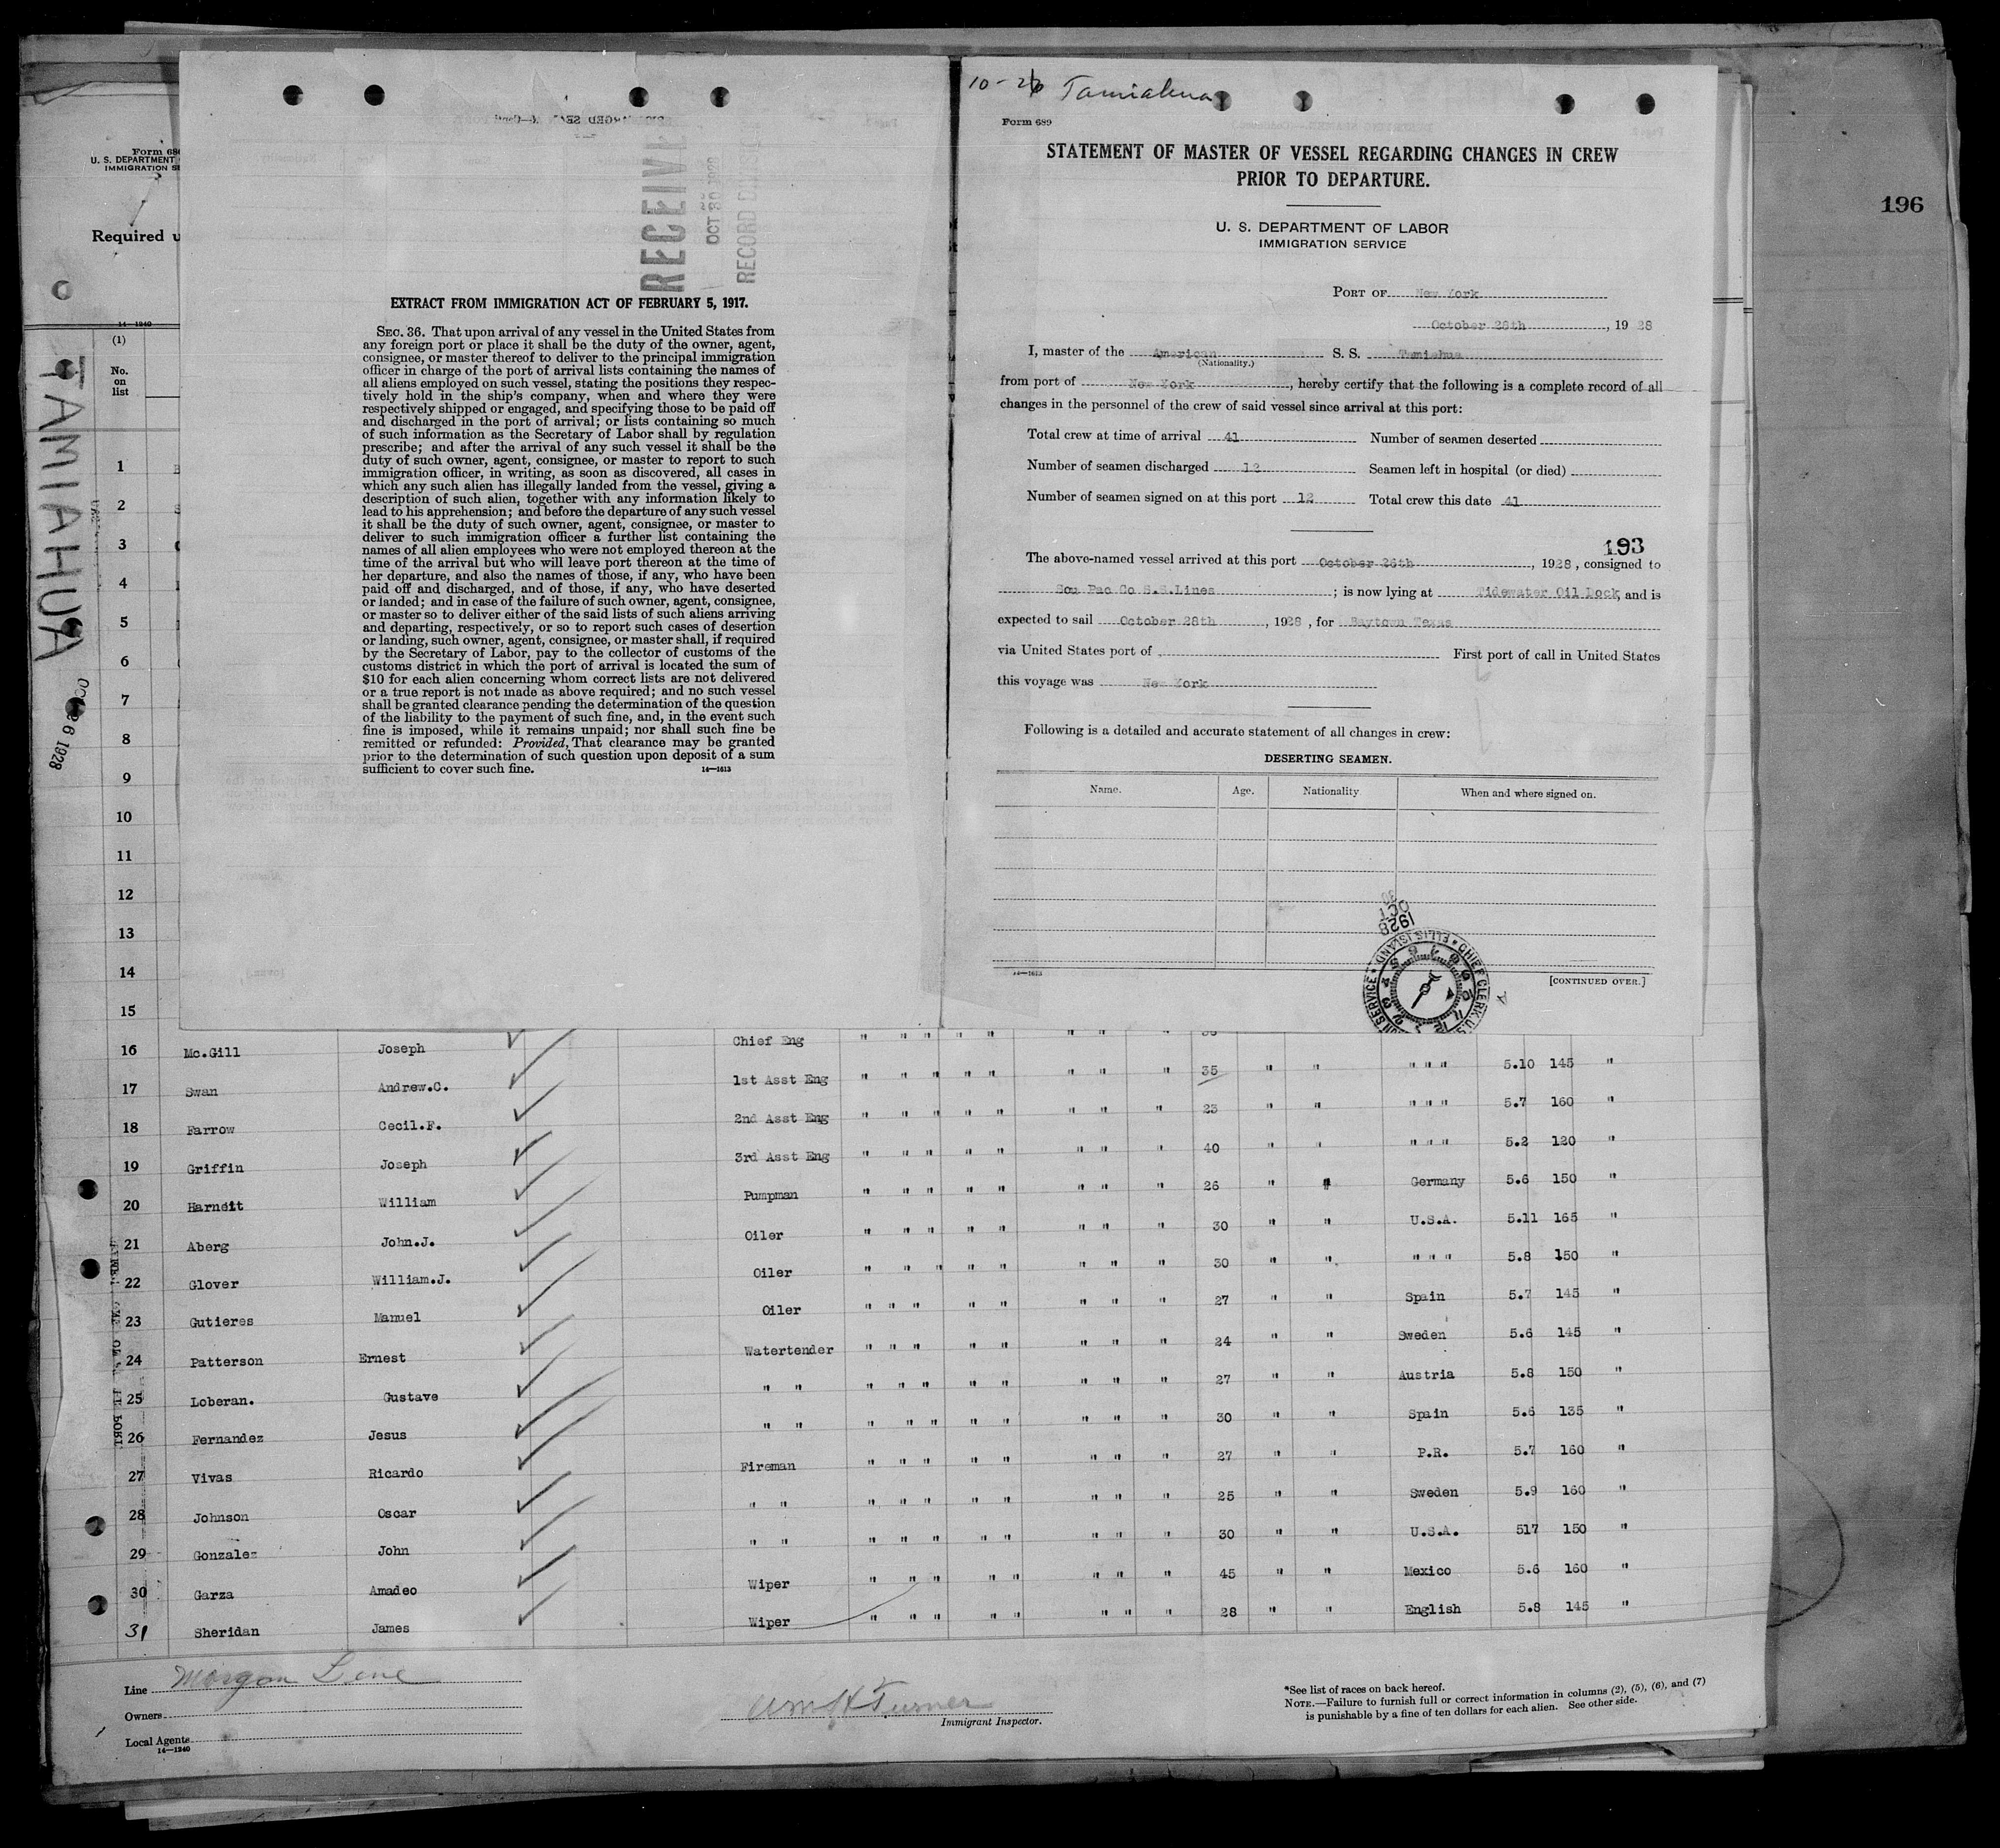 196
Form 68
U. S. DEPARTMENT
IMMIGRATION SE
Required u
14—1240
(1)
No.
on
list
TAMIAHUA
26 1928
1
2
3
4
5
6
7
8
9
10
11
12
13
14
15
RECEIVE
OCT 30 1928
RECORD
EXTRACT FROM IMMIGRATION ACT OF FEBRUARY 5, 1917.
SEC. 36. That upon arrival of any vessel in the United States from
any foreign port or place it shall be the duty of the owner, agent,
consignee, or master thereof to deliver to the principal immigration
officer in charge of the port of arrival lists containing the names of
all aliens employed on such vessel, stating the positions they respec-
tively hold in the ship's company, when and where they were
respectively shipped or engaged, and specifying those to be paid off
and discharged in the port of arrival; or lists containing so much
of such information as the Secretary of Labor shall by regulation
prescribe; and after the arrival of any such vessel it shall be the
duty of such owner, agent, consignee, or master to report to such
immigration officer, in writing, as soon as discovered, all cases in
which any such alien has illegally landed from the vessel, giving a
description of such alien, together with any information likely to
lead to his apprehension; and before the departure of any such vessel
it shall be the duty of such owner, agent, consignee, or master to
deliver to such immigration officer a further list containing the
names of all alien employees who were not employed thereon at the
time of the arrival but who will leave port thereon at the time of
her departure, and also the names of those, if any, who have been
paid off and discharged, and of those, if any, who have deserted
or landed; and in case of the failure of such owner, agent, consignee,
or master so to deliver either of the said lists of such aliens arriving
and departing, respectively, or so to report such cases of desertion
or landing, such owner, agent, consignee, or master shall, if required
by the Secretary of Labor, pay to the collector of customs of the
customs district in which the port of arrival is located the sum of
$10 for each alien concerning whom correct lists are not delivered
or a true report is not made as above required; and no such vessel
shall be granted clearance pending the determination of the question
of the liability to the payment of such fine, and, in the event such
fine is imposed, while it remains unpaid; nor shall such fine be
remitted or refunded: Provided, That clearance may be granted
prior to the determination of such question upon deposit of a sum
sufficient to cover such fine. 14—1613
10-26 Tamiahua
Form 689
STATEMENT OF MASTER OF VESSEL REGARDING CHANGES IN CREW
PRIOR TO DEPARTURE.
U. S. DEPARTMENT OF LABOR
IMMIGRATION SERVICE
PORT OF New York
October 28th, 1928
I, master of the American S. S. Tamiahua
(Nationality.)
from port of New York, hereby certify that the following is a complete record of all
changes in the personnel of the crew of said vessel since arrival at this port:
Total crew at time of arrival 41 Number of seamen deserted
Number of seamen discharged 12 Seamen left in hospital (or died)
Number of seamen signed on at this port 12 Total crew this date 41
193
The above-named vessel arrived at this port October 26th, 1928, consigned to
Sou Pac Co S.S.Lines; is now lying at Tidewater Oil Dock, and is
expected to sail October 28th, 1928, for Baytown Texas
via United States port of First port of call in United States
this voyage was New York
Following is a detailed and accurate statement of all changes in crew:
DESERTING SEAMEN.
Name. Age. Nationality When and where signed on.
OCT 30 1928
CHIEF CLERK U.S. ELLIS ISLAND SERVICE
14—1613 [CONTINUED OVER.]
16 Mc.Gill Joseph Chief Eng " " " " " " " "
17 Swan Andrew.C. 1st Asst Eng " " " " " " " " 35 " " " " " 5.10 145 "
18 Farrow Cecil.F. 2nd Asst Eng " " " " " " " " 23 " " " " " 5.7 160 "
19 Griffin Joseph 3rd Asst Eng " " " " " " " " 40 " " " " " 5.2 120 "
20 Harnett William Pumpman " " " " " " " " 26 " " Germany 5.6 150 "
21 Aberg John.J. Oiler " " " " " " " " 30 " " U.S.A. 5.11 165 "
22 Glover William.J. Oiler " " " " " " " " 30 " " " " " 5.8 150 "
23 Gutieres Manuel Oiler " " " " " " " " 27 " " Spain 5.7 145 "
24 Patterson Ernest Watertender " " " " " " " " 24 " " Sweden 5.6 145 "
25 Loberan. Gustave " " " " " " " " " " 27 " " Austria 5.8 150 "
26 Fernandez Jesus " " " " " " " " " " 30 " " Spain 5.6 135 "
27 Vivas Ricardo Fireman " " " " " " " " 27 " " P.R. 5.7 160 "
28 Johnson Oscar " " " " " " " " " " 25 " " Sweden 5.9 160 "
29 Gonzalez John " " " " " " " " " " 30 " " U.S.A. 517 150 "
30 Garza Amadeo Wiper " " " " " " " " 45 " " Mexico 5.6 160 "
31 Sheridan James Wiper " " " " " " " " 28 " " English 5.8 145 "
Line Morgan Line
Owners
Local Agents
14—1240
Wm H Turner
Immigrant Inspector.
*See list of races on back hereof.
NOTE.—Failure to furnish full or correct information in columns (2), (5), (6), and (7)
is punishable by a fine of ten dollars for each alien. See other side.